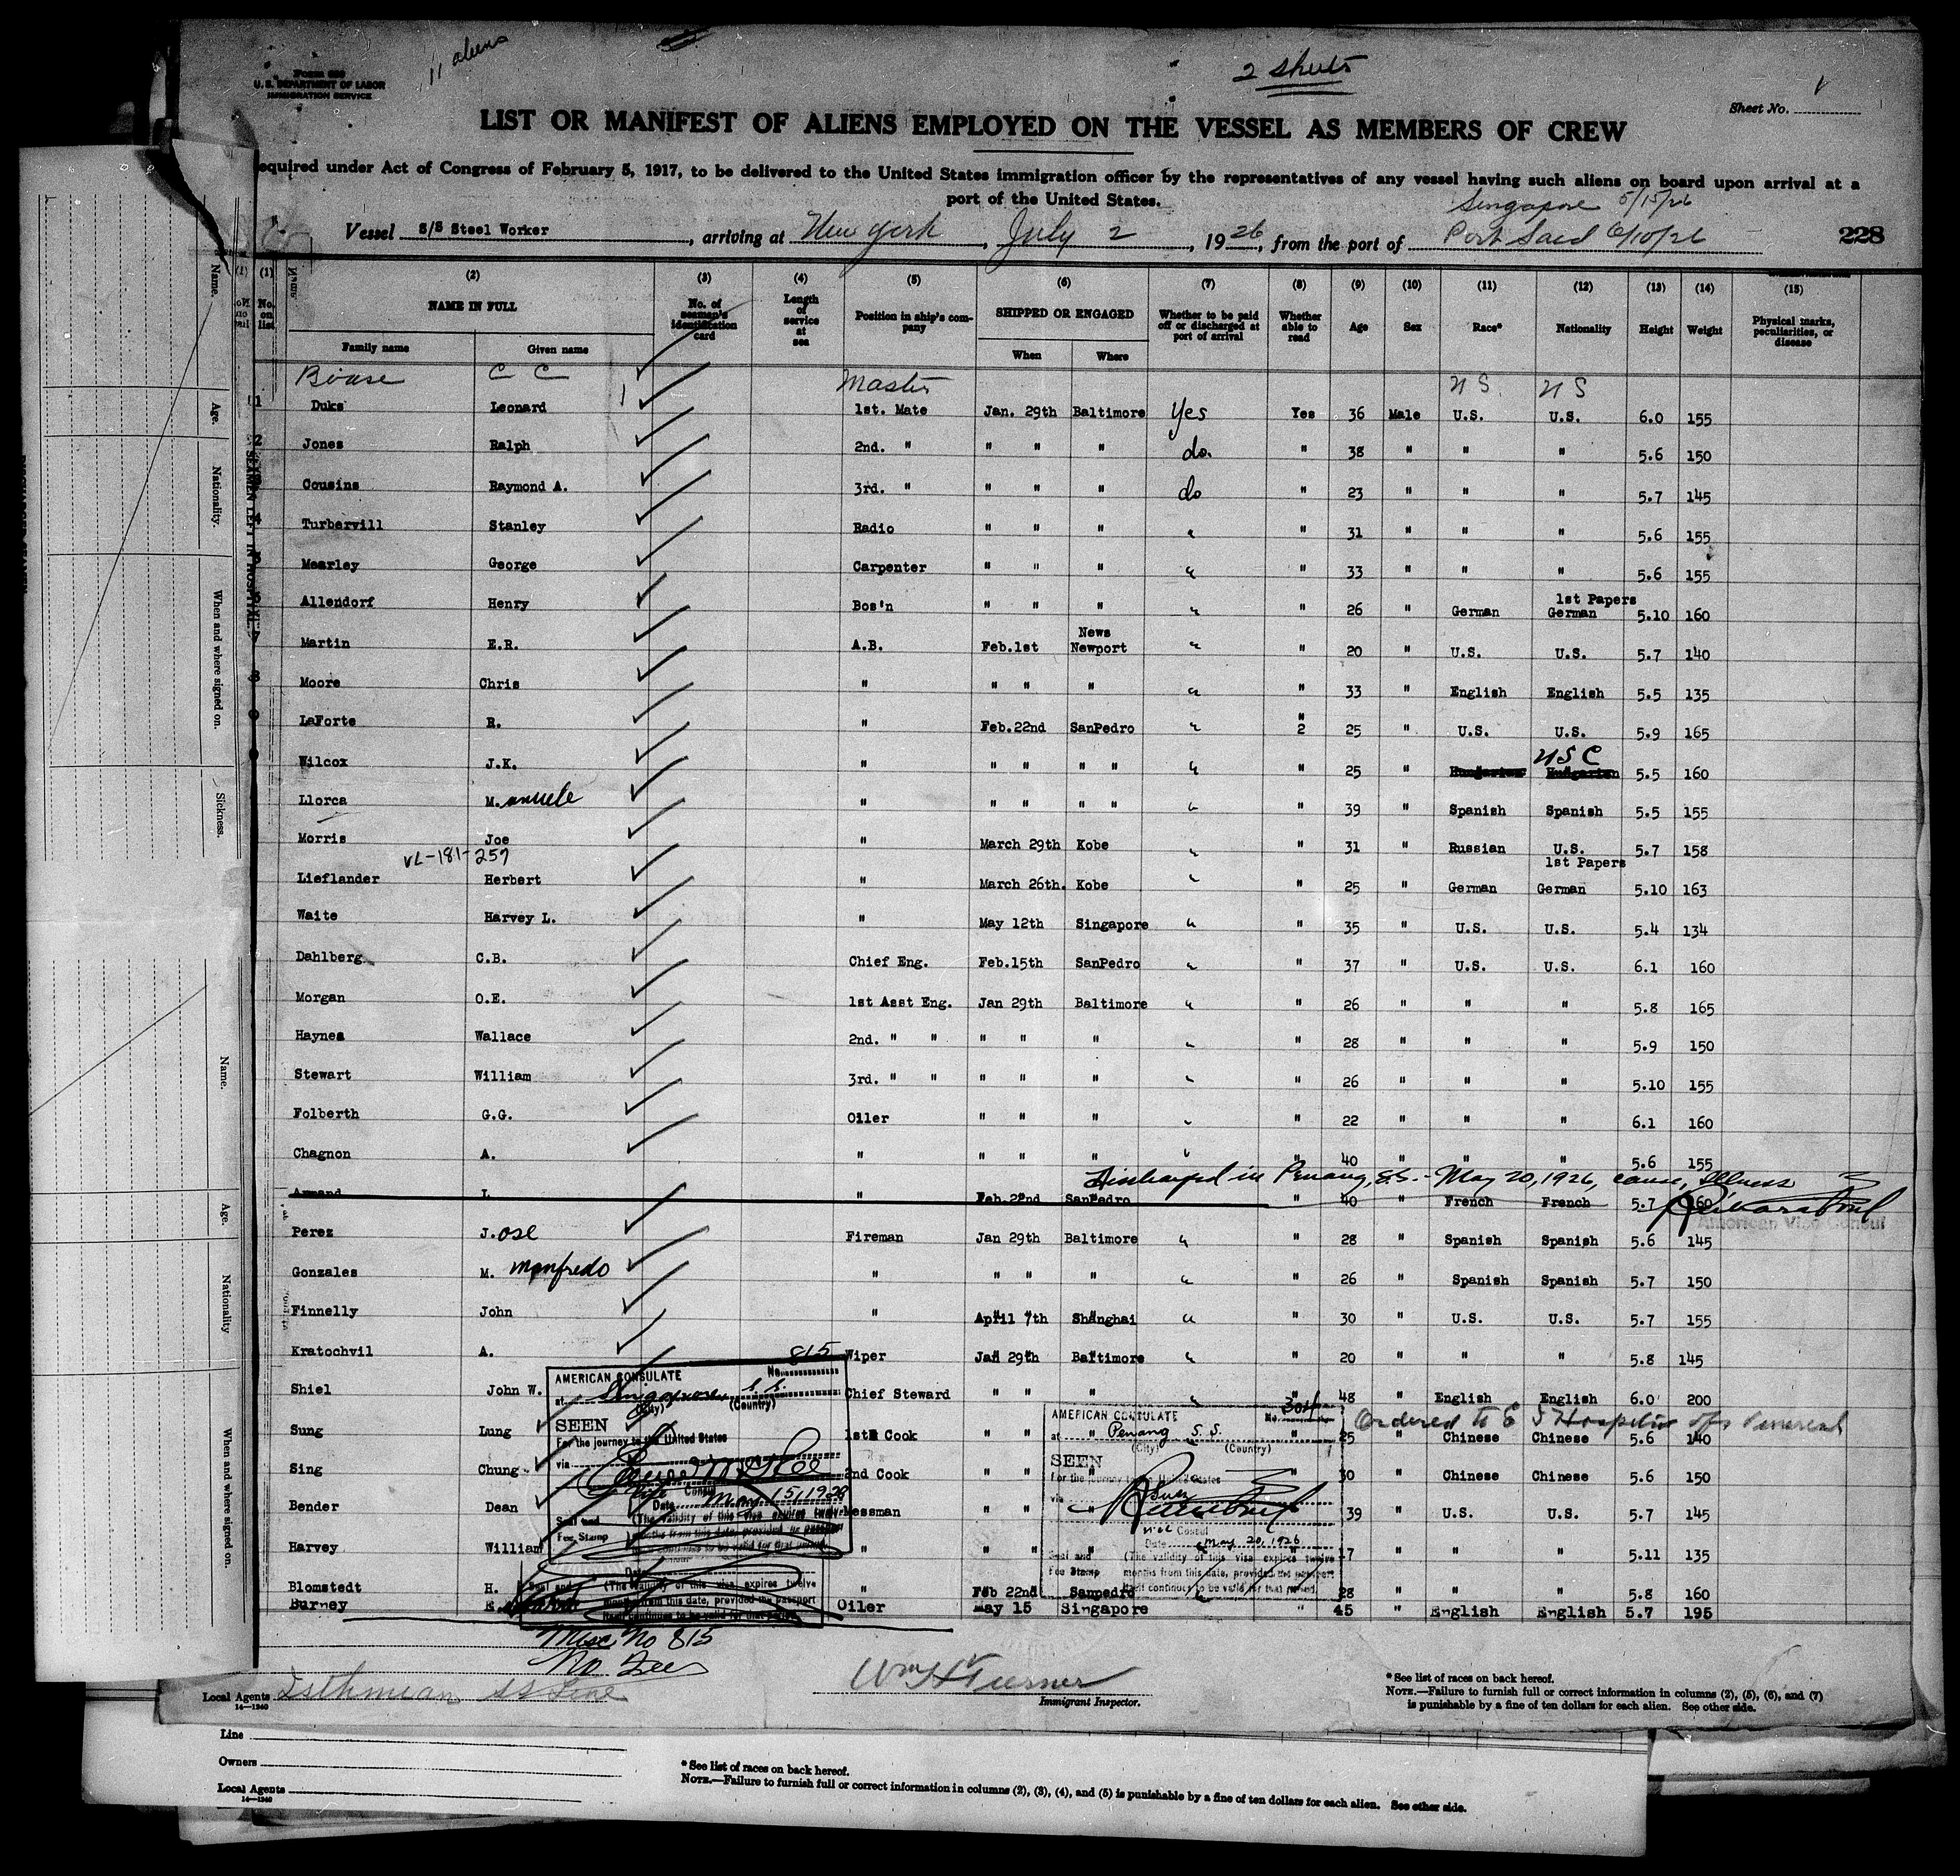 11 aliens
Form 689
U. S. DEPARTMENT OF LABOR
IMMIGRATION SERVICE
2 sheets
Sheet No. 1
LIST OR MANIFEST OF ALIENS EMPLOYED ON THE VESSEL AS MEMBERS OF CREW
equired under Act of Congress of February 5, 1917, to be delivered to the United States immigration officer by the representatives of any vessel having such aliens on board upon arrival at a
port of the United States.
Singapore 5/15/26
Vessel S/S Steel Worker, arriving at New York, July 2, 1926, from the port of Port Said 6/10/26
228
(1) (2) (3) (4) (5) (6) (7) (8) (9) (10) (11) (12) (13) (14) (15)
No. on list NAME IN FULL No. of seaman's identification card Length of service at sea Position in ship's company SHIPPED OR ENGAGED Whether to be paid off or discharged at port of arrival Whether able to read Age Sex Race* Nationality Height Weight Physical marks, peculiarities, or disease
Family name Given name When Where
C C Master U S U S
1 Duks Leonard 1st. Mate Jan. 29th Baltimore Yes Yes 36 Male U.S. U.S. 6.0 155
2 Jones Ralph 2nd. " " " " do. " 38 " " " 5.6 150
Cousins Raymond A. 3rd. " " " " do " 23 " " " 5.7 145
4 Turbervill Stanley Radio " " " " " 31 " " " 5.6 155
5 Mearley George Carpenter " " " " " 33 " " " 5.6 155
1st Papers
6 Allendorf Henry Bos'n " " " " " 26 " German German 5.10 160
News
7 Martin E.R. A.B. Feb.1st Newport " " 20 " U.S. U.S. 5.7 140
8 Moore Chris " " " " " " 33 " English English 5.5 135
9 LaForte R. " Feb.22nd SanPedro " " 2 25 " U.S. U.S. 5.9 165
USC
Wilcox J.K. " " " " " " " 25 " Hungarian Hungarian 5.5 160
Llorca M. anuele " " " " " " " 39 " Spanish Spanish 5.5 155
Morris Joe " March 29th Kobe " " 31 " Russian U.S. 5.7 158
VL-181-259
1st Papers
Lieflander Herbert " March 26th. Kobe " " 25 " German German 5.10 163
Waite Harvey L. " May 12th Singapore " " 35 " U.S. U.S. 5.4 134
Dahlberg C.B. Chief Eng. Feb.15th SanPedro " " 37 " U.S. U.S. 6.1 160
Morgan O.E. 1st Asst Eng. Jan 29th Baltimore " " 26 " " " 5.8 165
Haynes Wallace 2nd. " " " " " " " 28 " " " 5.9 150
Stewart William 3rd. " " " " " " " 26 " " " 5.10 155
Folberth G.G. Oiler " " " " " 22 " " " 6.1 160
Chagnon A. " " " " " " 40 " " " 5.6 155
Discharged in Penang, S.S. - May 20, 1926, cause, Illness
Armand L " Feb.22nd SanPedro " 40 " French French 5.7 160
American Vice Consul
Perez J. ose Fireman Jan 29th Baltimore " " 28 " Spanish Spanish 5.6 145
Gonzales M. Manfredo " " " " " " 26 " Spanish Spanish 5.7 150
Finnelly John " April 7th Shanghai " " 30 " U.S. U.S. 5.7 155
Kratochvil A. Wiper Jan 29th Baltimore " " 20 " " " 5.8 145
Shiel John W. Chief Steward " " " " " 48 " English English 6.0 200
Ordered to E I Hospital
Sung Lung 1st Cook " " " " 25 " Chinese Chinese 5.6 140
Sing Chung 2nd Cook " " " 30 " Chinese Chinese 5.6 150
Bender Dean Messman " " " 39 " U.S. U.S. 5.7 145
Harvey William " " " " 17 " " " 5.11 135
Blomstedt H. " Feb 22nd Sanpedro 28 " " " 5.8 160
Burney E. Oiler May 15 Singapore " 45 " English English 5.7 195
AMERICAN CONSULATE No. 815
at Singapore S.S.
(City) (Country)
SEEN
For the journey to the United States
via
Consul
Date May 15, 1926
Seal and Fee Stamp (The validity of this visa expires twelve months from this date, provided the passport itself continues to be valid for that period.
Seal and (The validity of this visa expires twelve
months from this date, provided the passport
itself continues to be valid for that period.
Misc No 815
No Fee
AMERICAN CONSULATE No. 301
at Penang S.S.
(City) (Country)
SEEN
For the journey to the United States
via Suez
Vice Consul
Date May 20, 1926
Seal and Fee Stamp (The validity of this visa expires twelve months from this date, provided the passport itself continues to be valid for that period.
Local Agents Isthmian SS Line
14—1240
Wm H Turner
Immigrant Inspector.
*See list of races on back hereof.
NOTE.—Failure to furnish full or correct information in columns (2), (5), (6), and (7)
is punishable by a fine of ten dollars for each alien. See other side.
Line
Owners
Local Agents
14—1240
*See list of races on back hereof.
NOTE.—Failure to furnish full or correct information in columns (2), (3), (4), and (5) is punishable by a fine of ten dollars for each alien. See other side.
Name.
Age.
Nationality.
When and where signed on.
Sickness.
SEAMEN LEFT IN HOSPITAL
Name.
Age.
Nationality
When and where signed on.